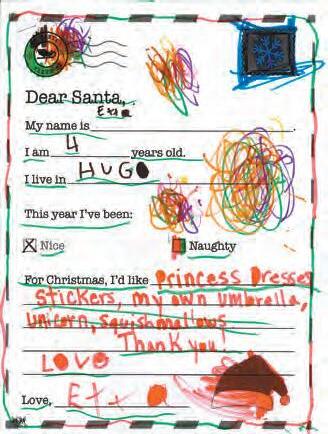 Dear Santa,
My name is
I am 4 years old.
I live in HUGO
This year I've been:
Nice Naughty
For Christmas, I'd like Princess Dresses
Stickers, my own umbrella,
Unicorn, Squishmallows
Thank you!
LOVE
Love,